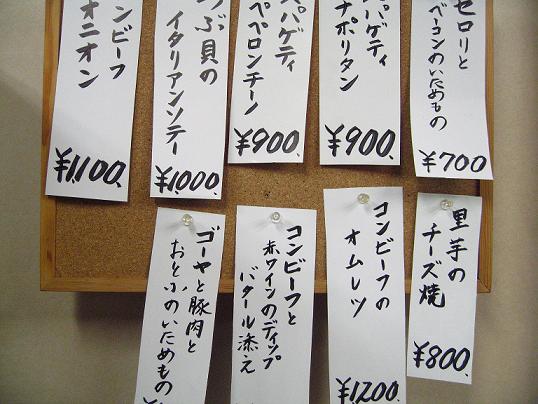 セロリと
ベーコンのいためもの
¥700
スパゲティ
ナポリタン
¥900.
スパゲティ
ペペロンチーノ
¥900.
つぶ貝の
イタリアンソテー
¥1000.
コンビーフ
オニオン
¥1,100.
里芋の
チーズ焼
¥800.
コンビーフの
オムレツ
¥1200.
コンビーフと
赤ワインのディップ
バタール添え
ゴーヤと豚肉と
おとふのいためもの